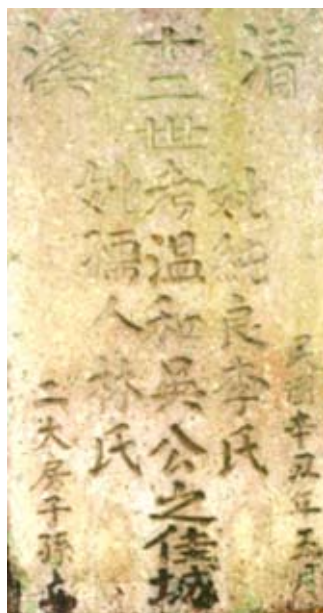 清溪
民國辛丑年五月
妣純良李氏
十二世考温和吳公之佳城
妣孺人林氏
二大房子孫